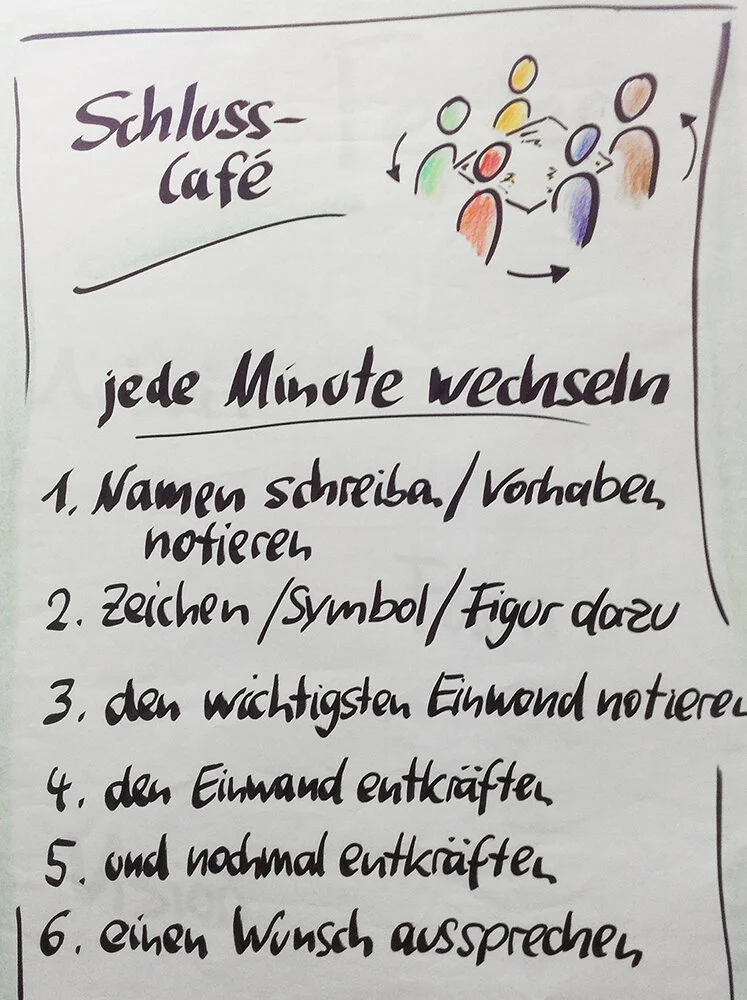 Schluss-
Café
jede Minute wechseln
1. Namen schreiben/Vorhaben
notieren
2. Zeichen/Symbol/Figur dazu
3. den wichtigsten Einwand notieren
4. den Einwand entkräften
5. und nochmal entkräften
6. einen Wunsch aussprechen